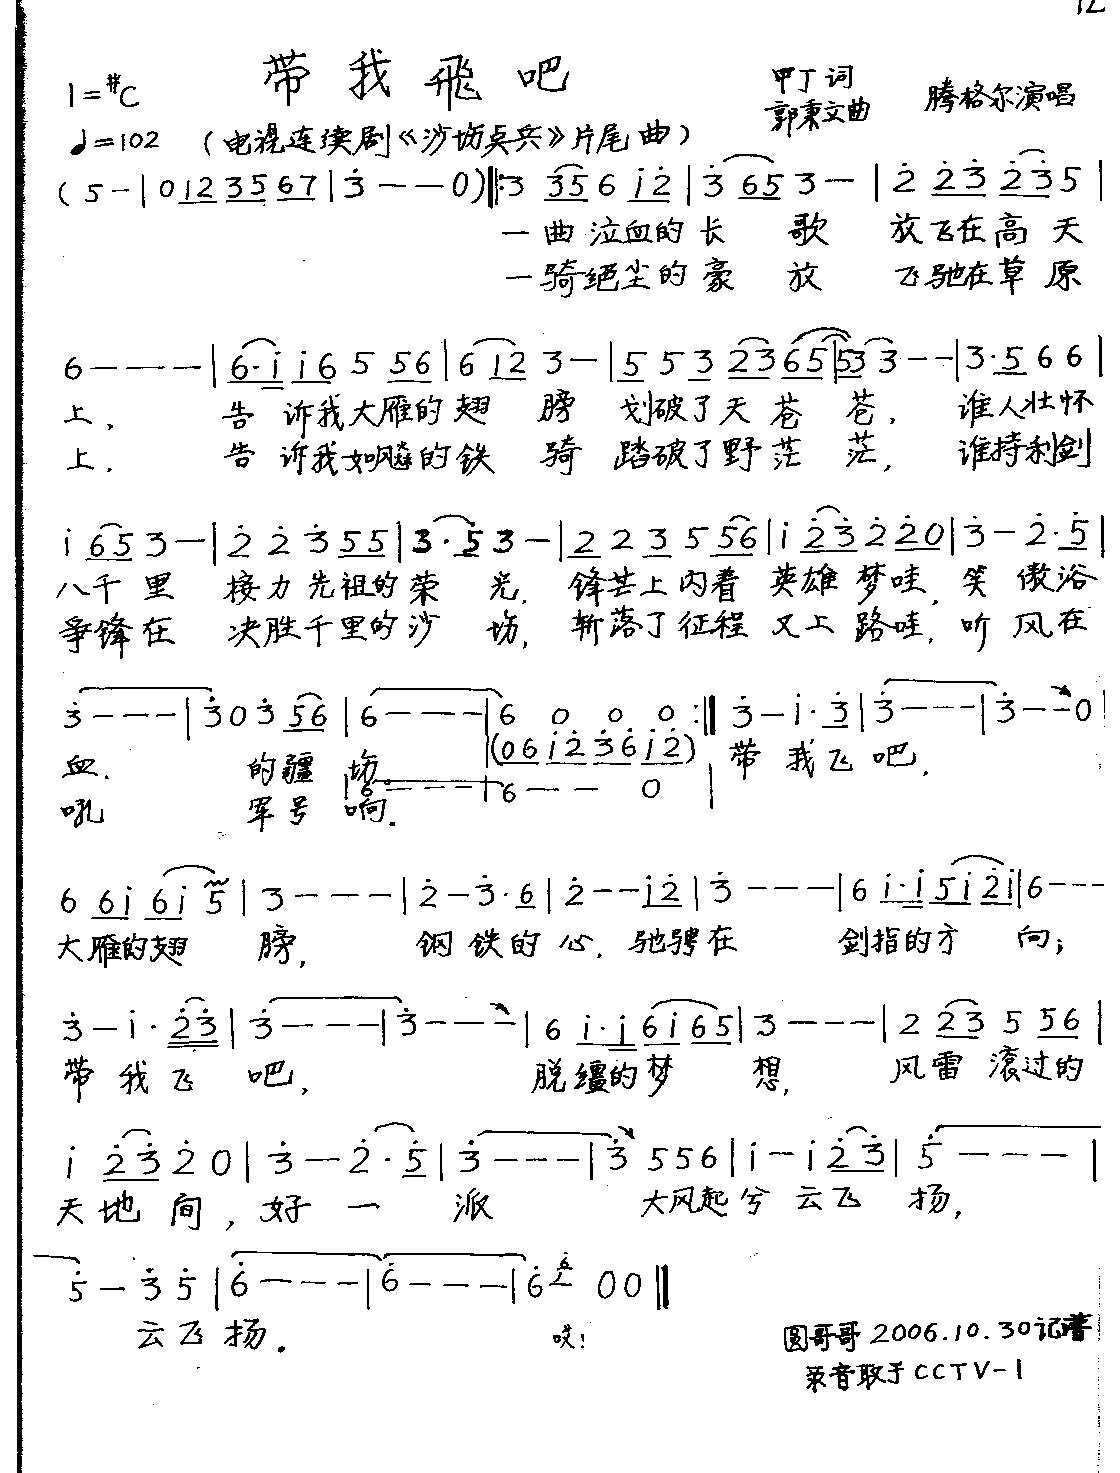 12
带我飛吧
1=#C
甲丁词
郭秉文曲
腾格尔演唱
♩=102 (电视连续剧《沙场点兵》片尾曲)
(5-|0123567|3---0)‖:3 356 12|3 653-|2 23 235|
一曲泣血的长歌 放飞在高天
一骑绝尘的豪放 飞驰在草原
6---|6·1 165 56|612 3-|5 53 2365|533--|3·566|
上, 告诉我大雁的翅膀 划破了天苍苍, 谁人壮怀
上, 告诉我如飚的铁骑 踏破了野茫茫, 谁持利剑
1653-|22355|3·53-|223556|123220|3-2·5|
八千里 接力先祖的荣光, 锋芒上内着英雄梦哇, 笑傲浴
争锋在 决胜千里的沙场, 斩落了征程又上路哇, 听风在
3---|30356|6---|6000:‖3-1·3|3---|3--0|
(06123612)
血. 的疆场。 带我飞吧,
|6---|6--0|
吼 军号响.
6 61 615|3---|2-3·6|2--12|3---|61·15121|6---
大雁的翅膀, 钢铁的心, 驰骋在 剑指的方向;
3-1·23|3---|3---|61·16165|3---|2 23 5 56|
带我飞吧, 脱缰的梦想, 风雷滚过的
1 2320|3-2·5|3---|3 556|1-123|5---|
天地间, 好一派 大风起兮云飞扬,
5-35|6---|6---|6 6 00‖
云飞扬. 哎!
圆哥哥 2006.10.30记谱
录音取于CCTV-1